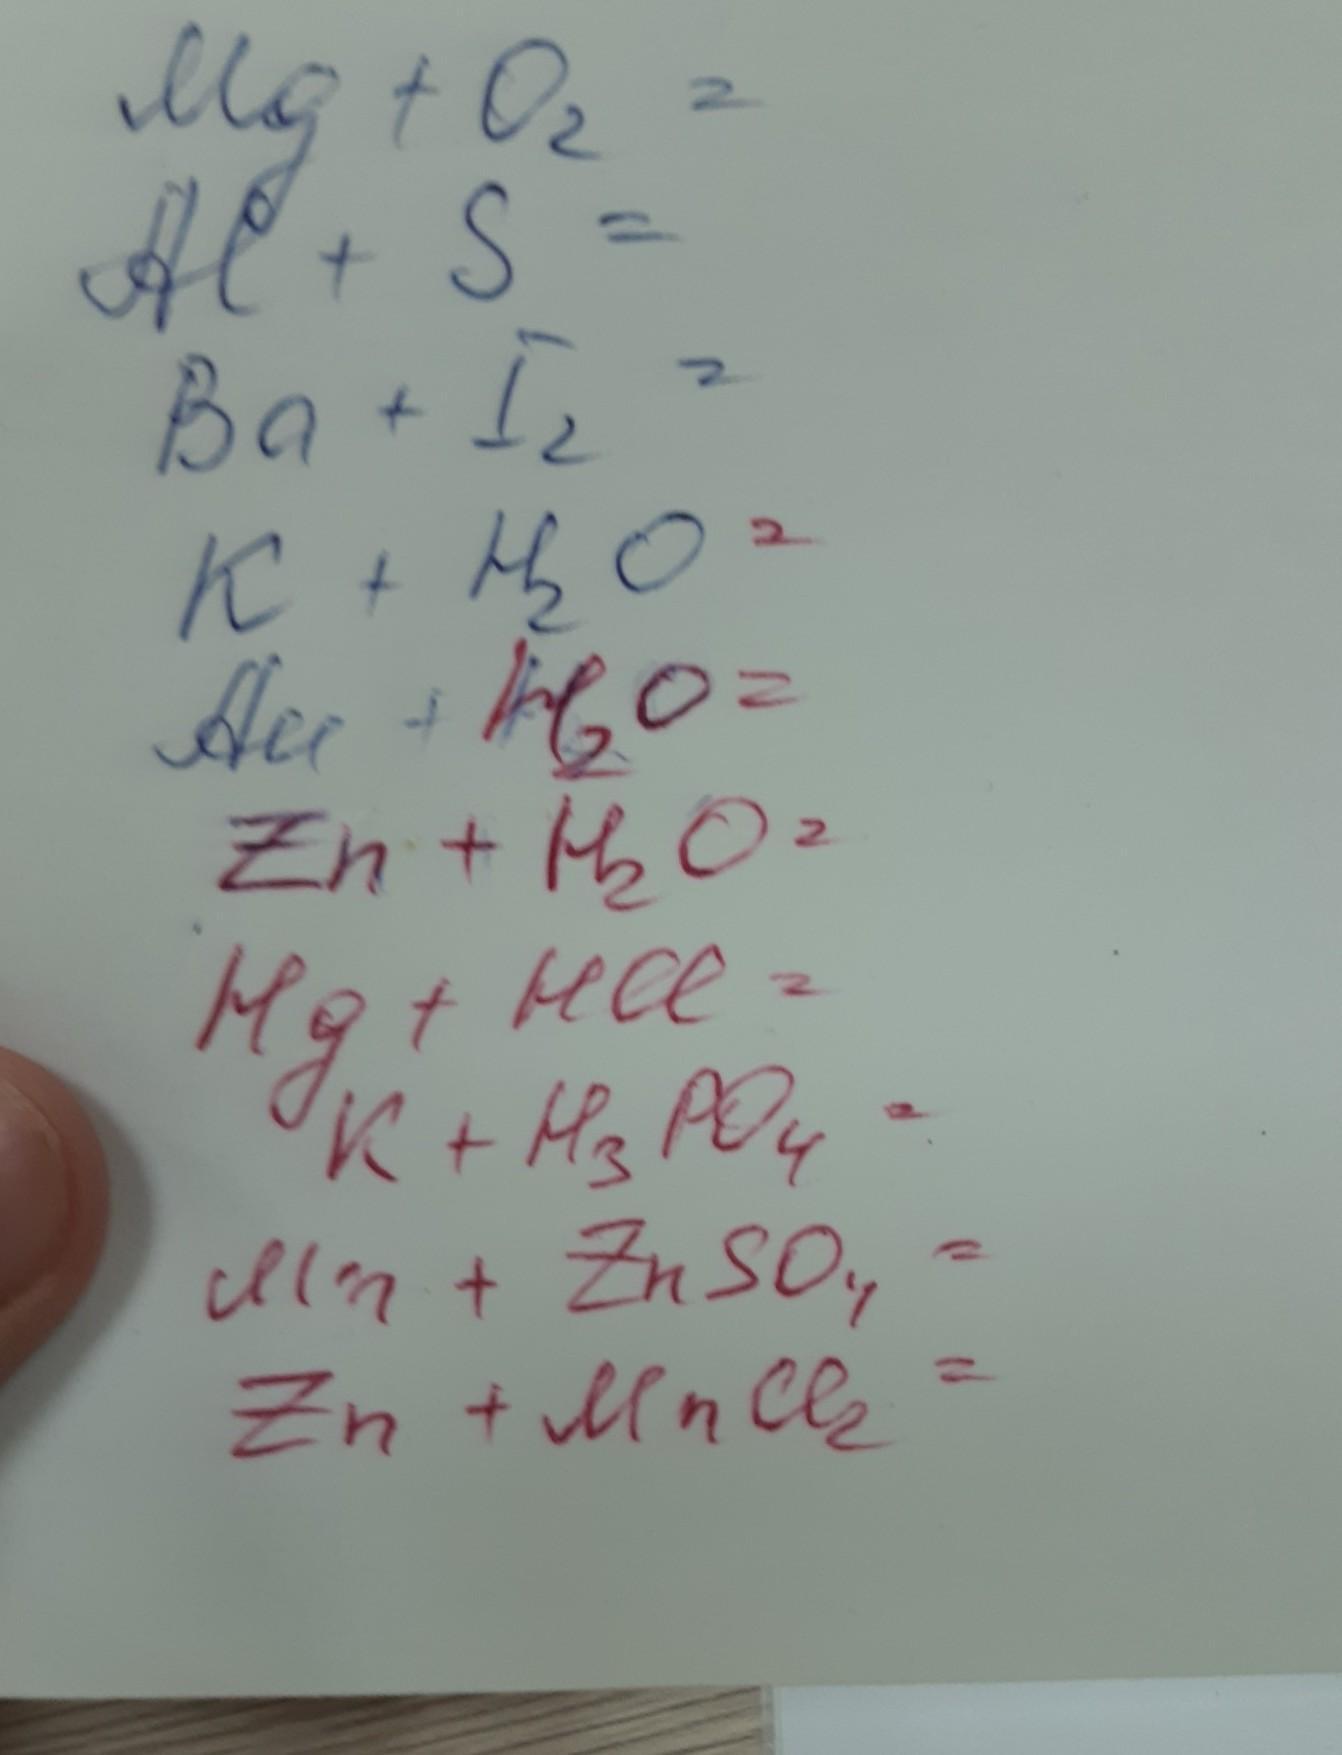 Mg + O₂ =
Al + S =
Ba + I₂ =
K + H₂O =
Au + H₂O =
Zn + H₂O =
Hg + HCl =
K + H₃PO₄ =
Mn + ZnSO₄ =
Zn + MnCl₂ =